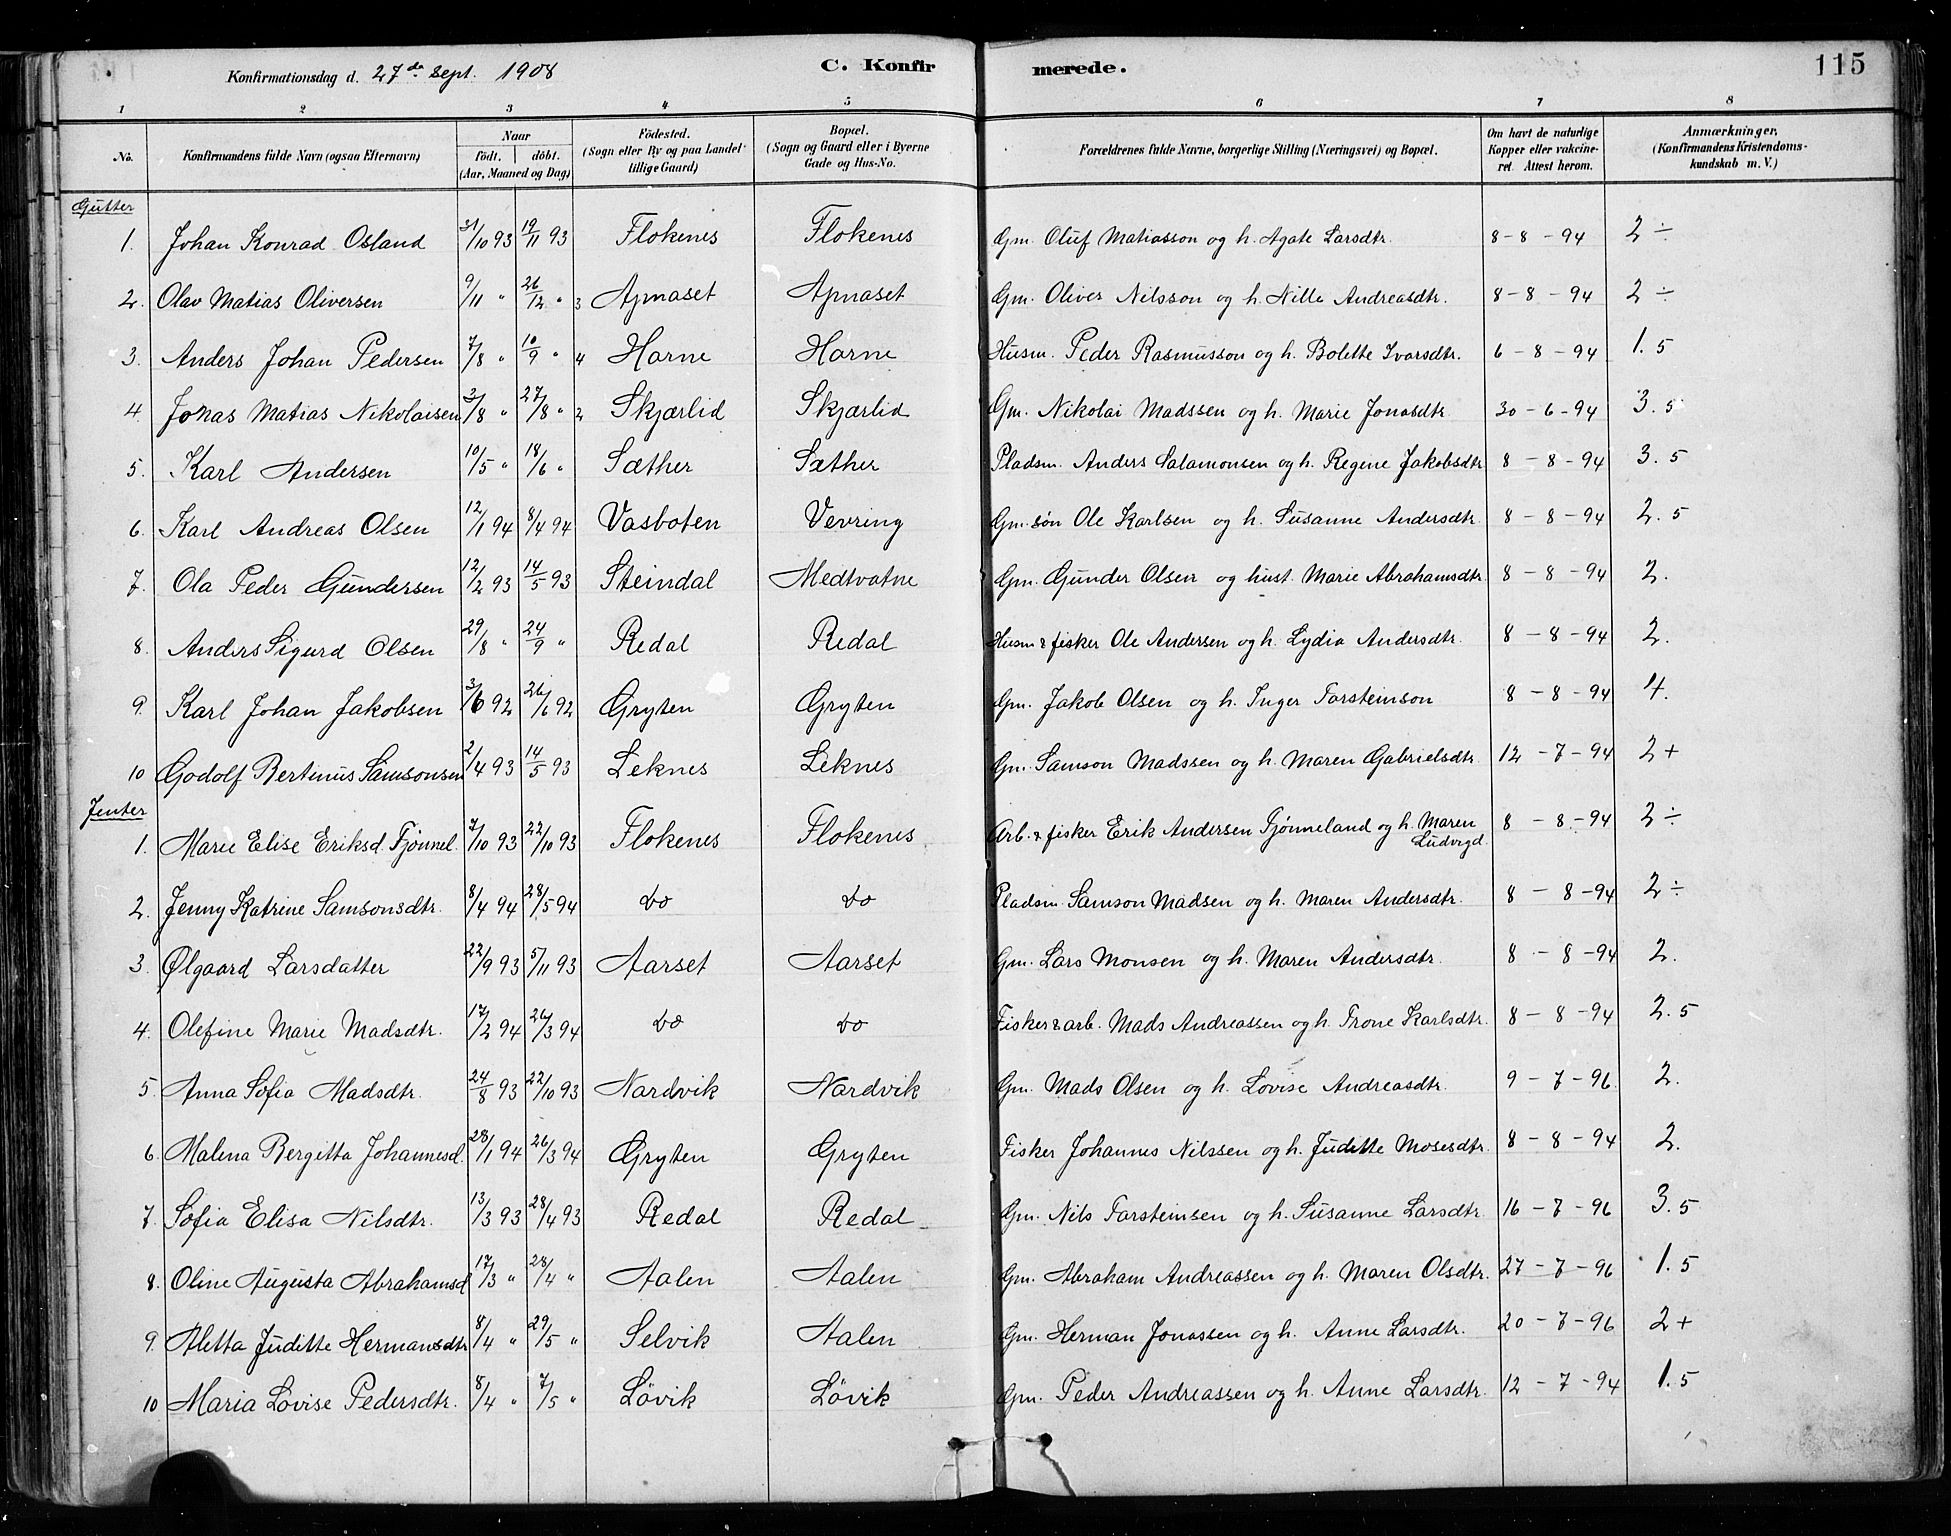 Konfirmationsdag d. 27de sept. 1908 C. Konfirmerede. 115
1 2 3 4 5 6 7 8
No. Konfirmandens fulde Navn (ogsaa Efternavn) Naar födt. döbt. (Aar, Maaned og Dag) Födested. (Sogn eller By og paa Landet tillige Gaard) Bopæl. (Sogn og Gaard eller i Byerne Gade og Hus-No. Forældrenes fulde Navne, borgerlige Stilling (Næringsvei) og Bopæl. Om havt de naturlige Kopper eller vakcineret. Attest herom. Anmærkninger, (Konfirmandens Kristendomskundskab m. V.)
Gutter
1. Johan Konrad Osland 31/10 93 19/11 93 Flokenes Flokenes Gm. Oluf Matiasson og h. Agate Larsdtr. 8-8-94 2 ÷
2. Olav Matias Oliversen 9/11 " 26/12 " 3 Apnaset Apnaset Gm. Oliver Nilsson og h. Nille Andreasdtr. 8-8-94 2 ÷
3. Anders Johan Pedersen 7/8 " 10/9 " 4 Horne Horne Husm. Peder Rasmusson og h. Bolette Ivarsdtr. 6-8-94 1.5
4. Jonas Matias Nikolaisen 3/8 " 27/8 " 2 Skjærlid Skjærlid Gm. Nikolai Madssen og h. Marie Jonasdtr 30-6-94 3.5
5. Karl Andersen 10/5 " 18/6 " Sæther Sæther Pladsm. Anders Salamonsen og h. Regene Jakobsdtr 8-8-94 3.5
6. Karl Andreas Olsen 12/1 94 8/4 94 Vasboten Vevring Gm. søn Ole Karlsen og h. Susanne Andersdtr. 8-8-94 2.5
7. Ola Peder Gundersen 12/2 93 14/5 93 Steindal Medtvatne Gm. Gunder Olsen og hust. Marie Abrahamsdtr 8-8-94 2.
8. Anders Sigurd Olsen 29/8 " 24/9 " Redal Redal Husm & fisker Ole Andersen og h. Lydia Andersdtr. 8-8-94 2.
9. Karl Johan Jakobsen 3/6 92 26/6 92 Gryten Gryten Gm. Jakob Olsen og h. Inger Torsteinson 8-8-94 4.
10 Godolf Bertinus Samsonsen 2/4 93 14/5 93 Leknes Leknes Gm. Samson Madssen og h. Maren Gabrielsdtr 12-7-94 2+
Jenter
1. Marie Elise Eriksd. Tjønnel. 7/10 93 22/10 93 Flokenes Flokenes Arb. & fisker Erik Andersen Tjønneland og h. Maren Ludvigd. 8-8-94 2 ÷
2. Jenny Katrine Samsonsdtr. 8/4 94 28/5 94 do do Pladsm. Samson Madsen og h. Maren Andersdtr. 8-8-94 2 ÷
3. Ølgaard Larsdatter 22/9 93 5/11 93 Aarset Aarset Gm. Lars Monsen og h. Maren Andersdtr. 8-8-94 2.
4. Olefine Marie Madsdtr. 17/2 94 26/3 94 do do Fisker & arb. Mads Andreassen og h. Trone Karlsdtr. 8-8-94 2.5
5. Anna Sofia Madsdtr. 24/8 93 22/10 93 Nordvik Nordvik Gm. Mads Olsen og h. Lovise Andreasdtr. 9-7-96 2.
6. Malena Bergitta Johannesd. 28/1 94 26/3 94 Gryten Gryten Fisker Johannes Nilssen og h. Juditte Mosesdtr. 8-8-94 2.
7. Sofia Elisa Nilsdtr. 13/3 93 28/4 93 Redal Redal Gm. Nils Torsteinsen og h. Susanne Larsdtr. 16-7-96 3.5
8. Oline Augusta Abrahamsd 17/3 " 28/4 " Aalen Aalen Gm. Abraham Andreassen og h. Maren Olsdtr. 27-7-96 1.5
9. Aletta Juditte Hermansdtr 8/4 " 29/5 " Selvik Aalen Gm. Herman Jonassen og h. Anne Larsdtr. 20-7-96 2+
10 Maria Lovise Pedersdtr. 8/4 " 7/5 " Lövik Lövik Gm. Peder Andreassen og h. Anne Larsdtr. 12-7-94 1.5